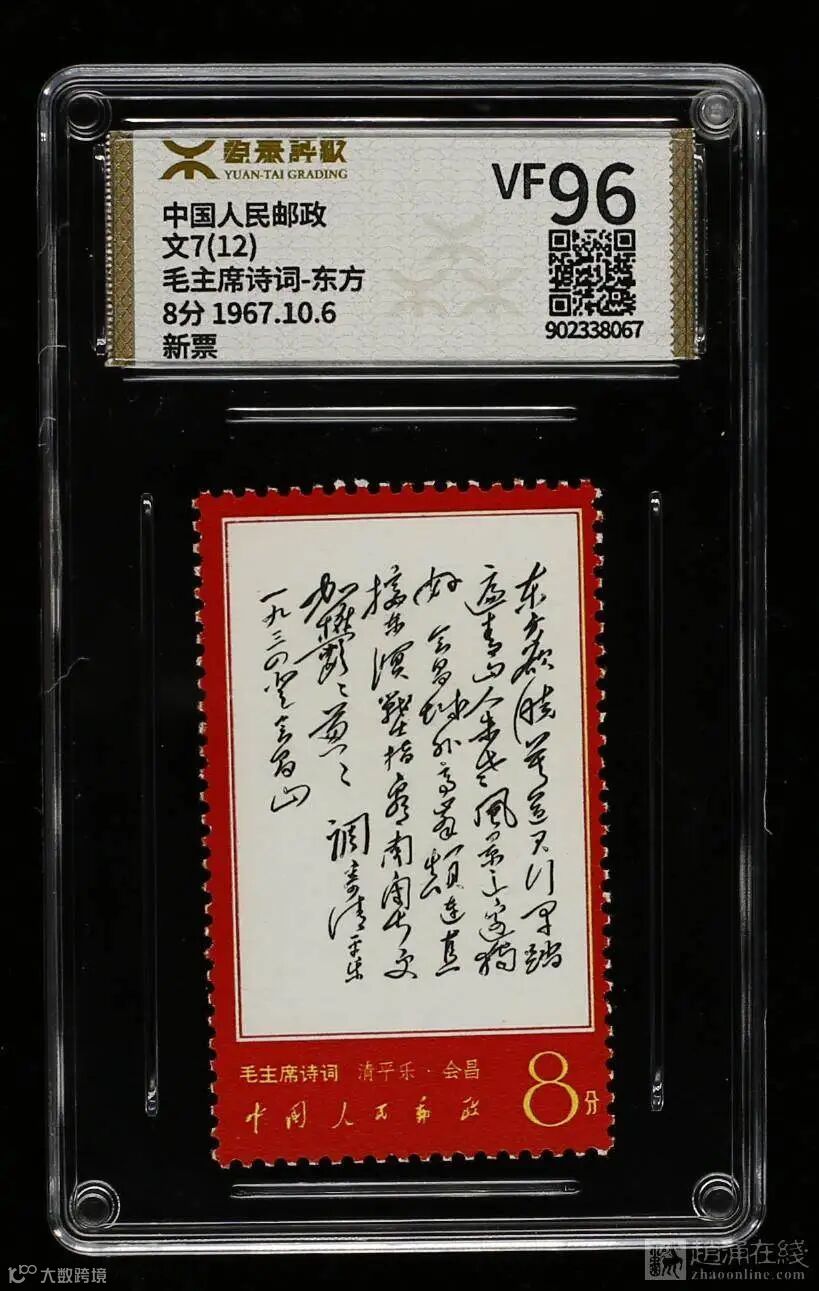 源泰評級
YUAN-TAI GRADING
中国人民邮政
文7(12)
毛主席诗词-东方
8分 1967.10.6
新票
VF96
902338067
东方欲晓莫道君行早踏
遍青山人未老风景这边独
好 会昌城外高峰颠连直
接东溟战士指看南粤更
加鬱〻葱〻 调寄清平乐
一九三四登会昌山
毛主席诗词 清平乐·会昌
中国人民邮政
8分
大数跨境
趙涌在綫
zhaoonline.com